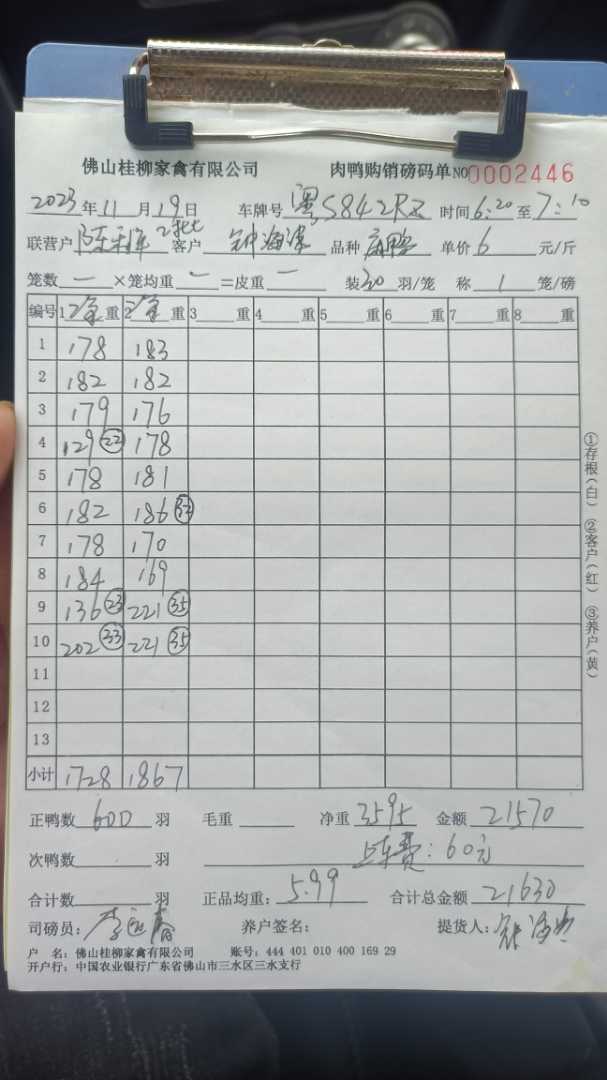 佛山桂柳家禽有限公司 肉鸭购销磅码单 NO 0002446
2023年11月19日 车牌号 粤S842RZ 时间 6:20 至 7:10
联营户 2批 客户 钟海涛 品种 单价 6 元/斤
笼数 一 ×笼均重 一 =皮重 一 装 30 羽/笼 称 1 笼/磅
编号 1净重 2净重 3 重 4 重 5 重 6 重 7 重 8 重
1 178 183
2 182 182
3 179 176
4 129 (22) 178
5 178 181
6 182 186 (32)
7 178 170
8 184 169
9 136 (23) 221 (35)
10 202 (33) 221 (35)
11
12
13
小计 1728 1867
正鸭数 600 羽 毛重 净重 3595 金额 21570
次鸭数 羽 上车费:60元
合计数 羽 正品均重: 5.99 合计总金额 21630
司磅员: 养户签名: 提货人:
户 名:佛山桂柳家禽有限公司 账号:444 401 010 400 169 29
开户行:中国农业银行广东省佛山市三水区三水支行
①存根(白) ②客户(红) ③养户(黄)